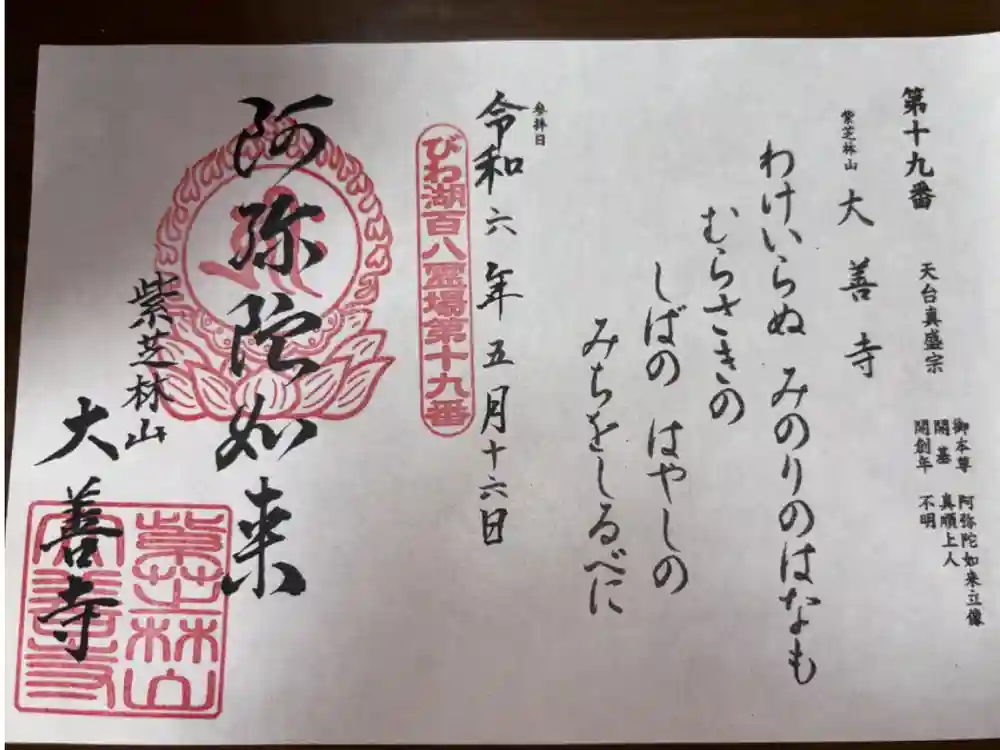 第十九番 天台真盛宗
御本尊 阿弥陀如来立像
開基 真順上人
開創年 不明
紫芝林山 大善寺
わけいらぬ みのりのはなも
むらさきの
しばの はやしの
みちをしるべに
参拝日
令和六年五月十六日
びわ湖百八霊場第十九番
阿弥陀如来
紫芝林山
大善寺
紫芝林山
大善寺